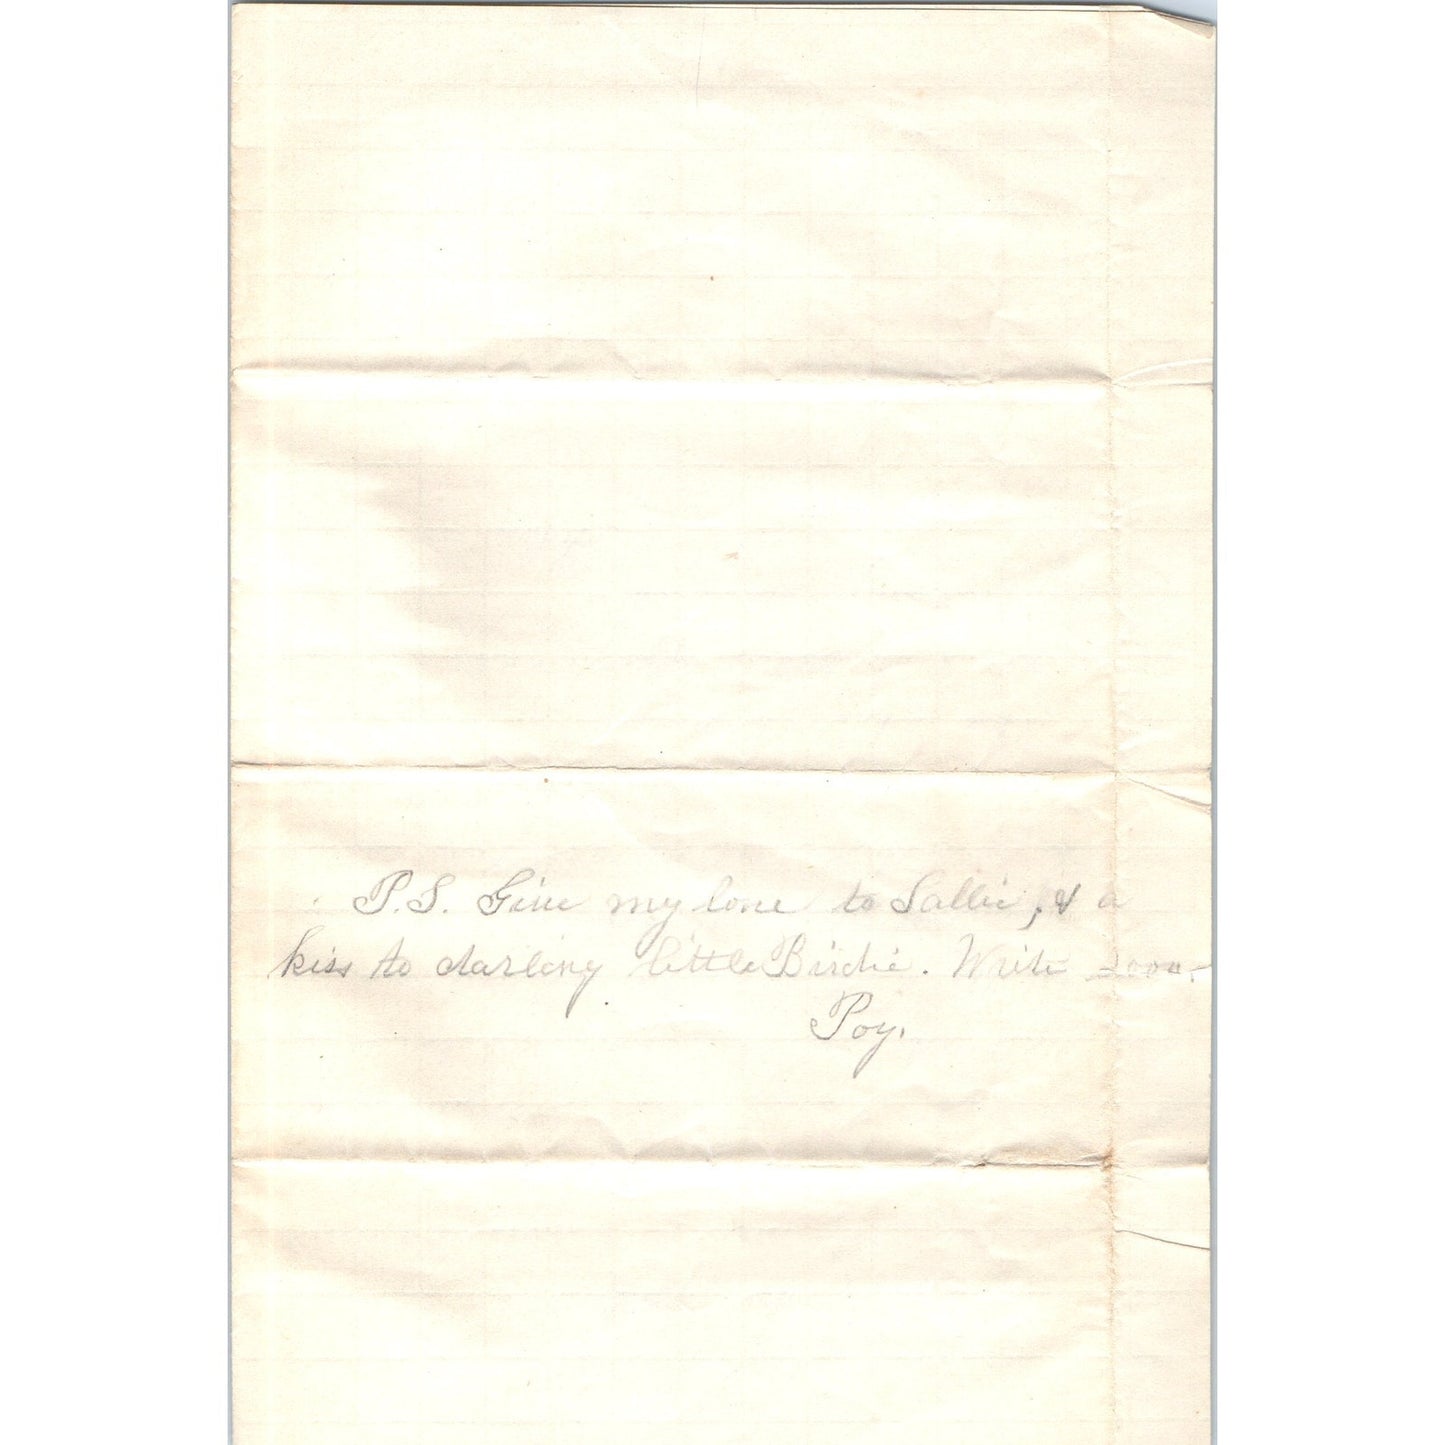 P.S. Give my love to Sallie, & a
kiss to darling little Birdie. Write soon.
Poy.